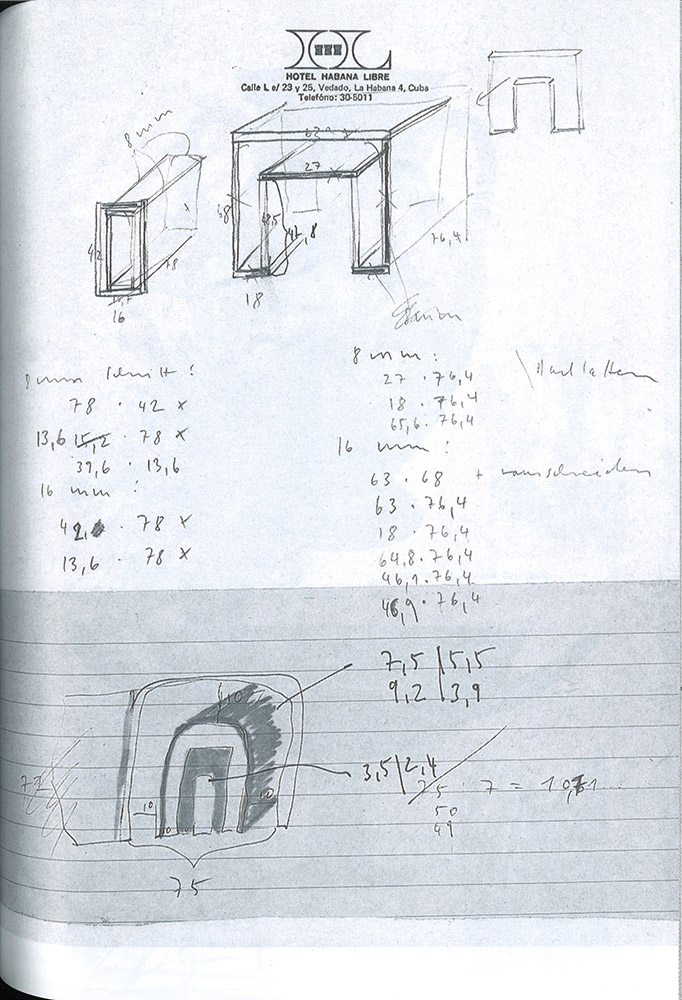 HOTEL HABANA LIBRE
Calle L e/ 23 y 25, Vedado, La Habana 4, Cuba
Telefóno: 30-5011
8 mm
27
68
42
78
76,4
16
18
8 mm Schnitt:
78 · 42 x
13,6 15,2 · 78 x
39,6 · 13,6
16 mm:
78 x
13,6 · 78 x
8 mm:
27 · 76,4
18 · 76,4
65,6 · 76,4
16 mm:
63 · 68 +
63 · 76,4
18 · 76,4
64,8 · 76,4
46,1 · 76,4
76,4
7,5 | 5,5
9,2 | 3,9
10
3,5 | 2,4
75 · 7 =
50
49
10
10
75